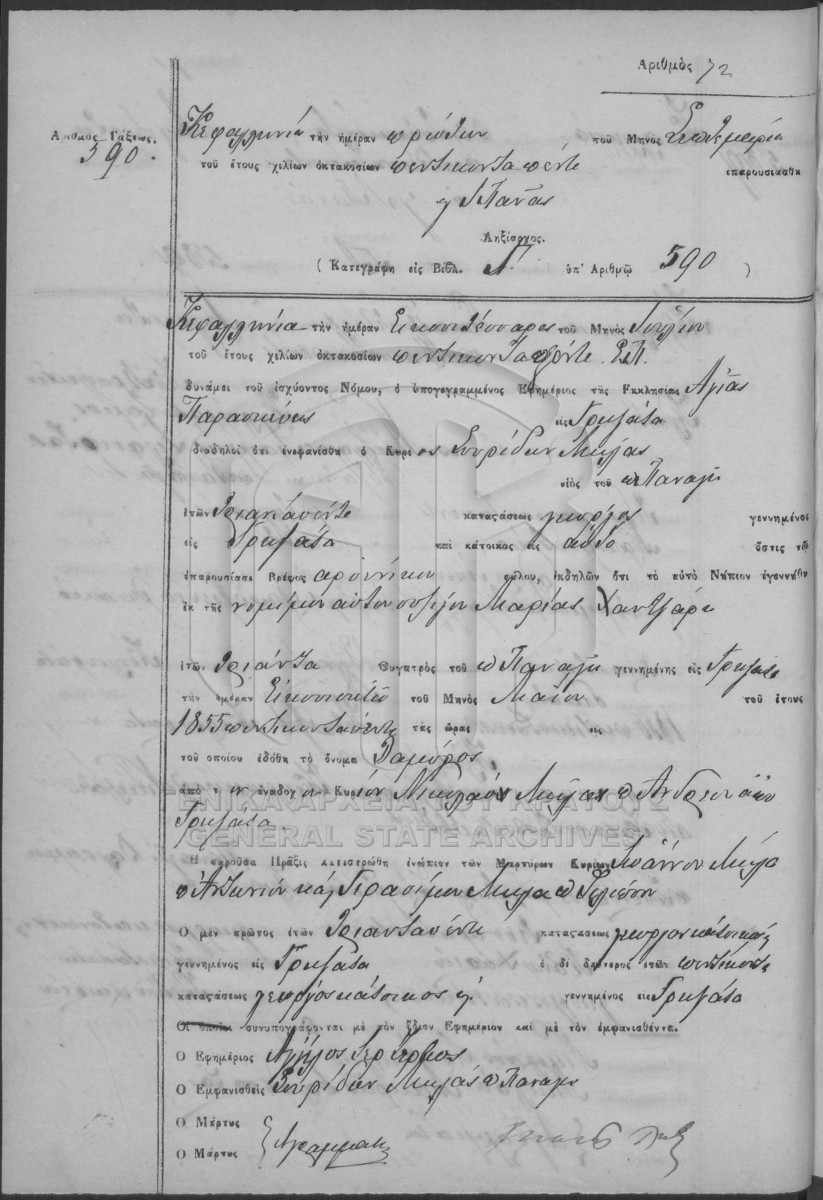 Αριθμὸς 72
Αριθμος Τάξεως.
590.
Κεφαλληνία τὴν ἡμέραν πρώτην τοῦ Μηνὸς Σεπτεμβρίου
τοῦ ἔτους χιλίων ὀκτακοσίων πεντήκοντα πέντε ἐπαρουσιάσθη
Ληξίαρχος.
( Κατεγράφη εἰς Βιβλ. Γ. ὑπ' Αριθμῷ 590 )
Κεφαλληνία τὴν ἡμέραν Εικοσιτέσσαρες τοῦ Μηνὸς Ιουλίου
τοῦ ἔτους χιλίων ὀκτακοσίων πεντήκοντα πέντε. Ε.Π.
δυνάμει τοῦ ἰσχύοντος Νόμου, ὁ ὑπογεγραμμένος Εφημέριος τῆς Εκκλησίας Αγίας
Παρασκευης εἰς Γριζάτα
διαδηλοῖ ὅτι ἐνεφανίσθη ὁ Κυριος Σπυρίδων Μιχλας
υἱὸς τοῦ π Παναγῆ
ἐτῶν τριανταπέντε καταςάσεως γεωργος γεννημένος
εἰς Γριζάτα καὶ κάτοικος εἰς αυτο ὅςτις νῦ
ἐπαρουσίασε Βρέφος αρσενικου φύλου, ἐκδηλῶν ὅτι τὸ αὐτὸ Νήπιον ἐγεννήθη
ἐκ τῆς νομίμου αυτου συζίγου Μαρίας
ἐτῶν τριάντα Θυγατρὸς τοῦ π Παναγῆ γεννημένης εἰς Γριζάτα
τὴν ἡμέραν Εικοσιοκτω τοῦ Μηνὸς Μαϊου τοῦ ἔτους
1855 πεντηκονταπέντε τὰς ὥρας εις
τοῦ ὁποίου ἐδόθη τὸ ὄνομα
ἀπὸ τον ἀνάδοχον Κυριον Νικολαον Μιχλαν π Ανδρεου απο
Γριζάτα
Η παροῦσα Πρᾶξις κατεστρώθη ἐνώπιον τῶν Μαρτύρων Κυρίων Ιωάννου Μιχλα
π Αντωνιου και Γερασίμου Μιχλα π
Ο μὲν πρῶτος ἐτῶν τριανταπέντε καταςάσεως γεωργος κατοικος
γεννημένος εἰς Γριζάτα ὁ δὲ δεύτερος ἐτῶν πεντήκοντα
καταςάσεως γεωργος κάτοικος γεννημένος εἰς Γριζάτα
Οἱ ὁποῖοι συνυπογράφονται μὲ τὸν ἴδιον Εφημέριον καὶ μὲ τὸν ἐμφανισθέντα.
Ο Εφημέριος
Ο Εμφανισθεὶς Σπυρίδων Μιχλάς π Παναγη
Ο Μάρτυς
Ο Μάρτυς Αγράμματοι
ΓΕΝΙΚΑ ΑΡΧΕΙΑ ΤΟΥ ΚΡΑΤΟΥΣ
GENERAL STATE ARCHIVES